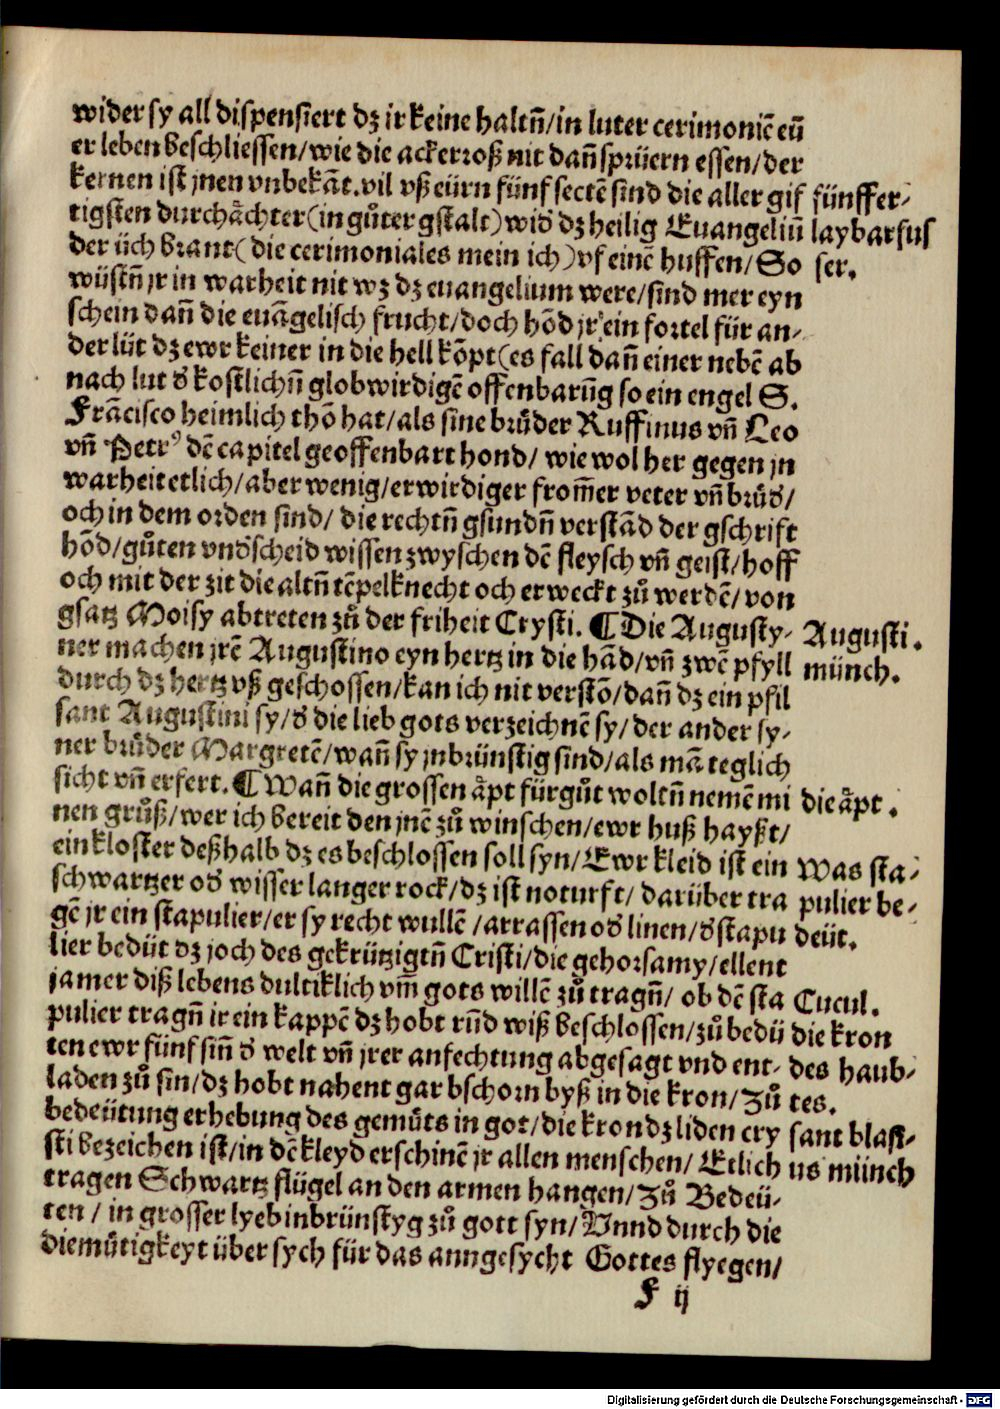 wider sy all dispensiert dz ir keine haltñ/in luter cerimoniē eü
er leben beschliessen/wie die ackerroß nit dañ sprüern essen/der
kernen ist jnen vnbekāt. vil vß eürn fünf sectē sind die aller gif
tigsten durchåchter(in gůter gstalt)wid̕ dz heilig Euangeliū
der üch brant(die cerimoniales mein ich)vf einē huffen/So
wüstñ jr in warheit nit wz dz euangelium were/sind mer eyn
schein dañ die euāgelisch frucht/doch hōd jr ein fortel für an-
der lüt dz ewr keiner in die hell kōpt(es fall dañ einer nebē ab
nach lut d̕ kostlichñ globwirdigē offenbarūg so ein engel S.
Frācisco heimlich thō hat/als sine brůder Ruffinus vñ Leo
vñ Petrꝰ dē capitel geoffenbart hond/ wie wol her gegen jn
warheit etlich/aber wenig/erwirdiger from̄er veter vñ brůd̕/
och in dem orden sind/ die rechtñ gsundñ verstād der gschrift
hōd/gůten vnd̕scheid wissen zwyschen dē fleysch vñ geist/hoff
och mit der zit die altñ tēpelknecht och erweckt zů werdē/von
gsatz Moisy abtreten zů der friheit Crysti. ¶ Die Augusty-
ner machen jrē Augustino eyn hertz in die hād/vñ zwē pfyll
durch dz hertz vß geschossen/kan ich nit verstō/dañ dz ein pfil
sant Augustini sy/d̕ die lieb gots verzeichnē sy/der ander sy-
ner brůder Margretē/wañ sy jnbrünstig sind/als mā teglich
sicht vñ erfert. ¶ Wañ die grossen åpt fürgůt woltñ nemē mi
nen grůß/wer ich bereit den jnē zů winschen/ewr huß hayßt/
ein kloster deßhalb dz es beschlossen soll syn/Ewr kleid ist ein
schwartzer od̕ wisser langer rock/dz ist noturft/ darüber tra
gē jr ein stapulier/er sy recht wullē/arrassen od̕ linen/d̕ stapu
lier bedüt dz joch des gekrützigtñ Cristi/die gehorsamy/ellent
jamer diß lebens dultiklich vm̄ gots willē zů tragñ/ ob dē sta
pulier tragñ ir ein kappē dz hobt rūd wiß beschlossen/zů bedü
ten ewr fünf siñ d̕ welt vñ jrer anfechtung abgesagt vnd ent-
laden zů sin/dz hobt nahent gar bschorn byß in die kron/Zů
bedeütung erhebung des gemůts in got/die kron dz liden cry
sti bezeichen ist/in dē kleyd erschinē jr allen menschen/ Etlich
tragen Schwartz flügel an den armen hangen/Zů Bedeü-
ten / in grosser lyeb inbrünstyg zů gott syn/Vnnd durch die
diemůtigkeyt über sych für das anngesycht Gottes flyegen/
F ij
fünffer-
lay barfus
ser.
Augusti.
münch.
die åpt.
Was sta-
pulier be-
deüt.
Cucul.
die kron
des haub-
tes.
sant blasi-
us münch
Digitalisierung gefördert durch die Deutsche Forschungsgemeinschaft - DFG